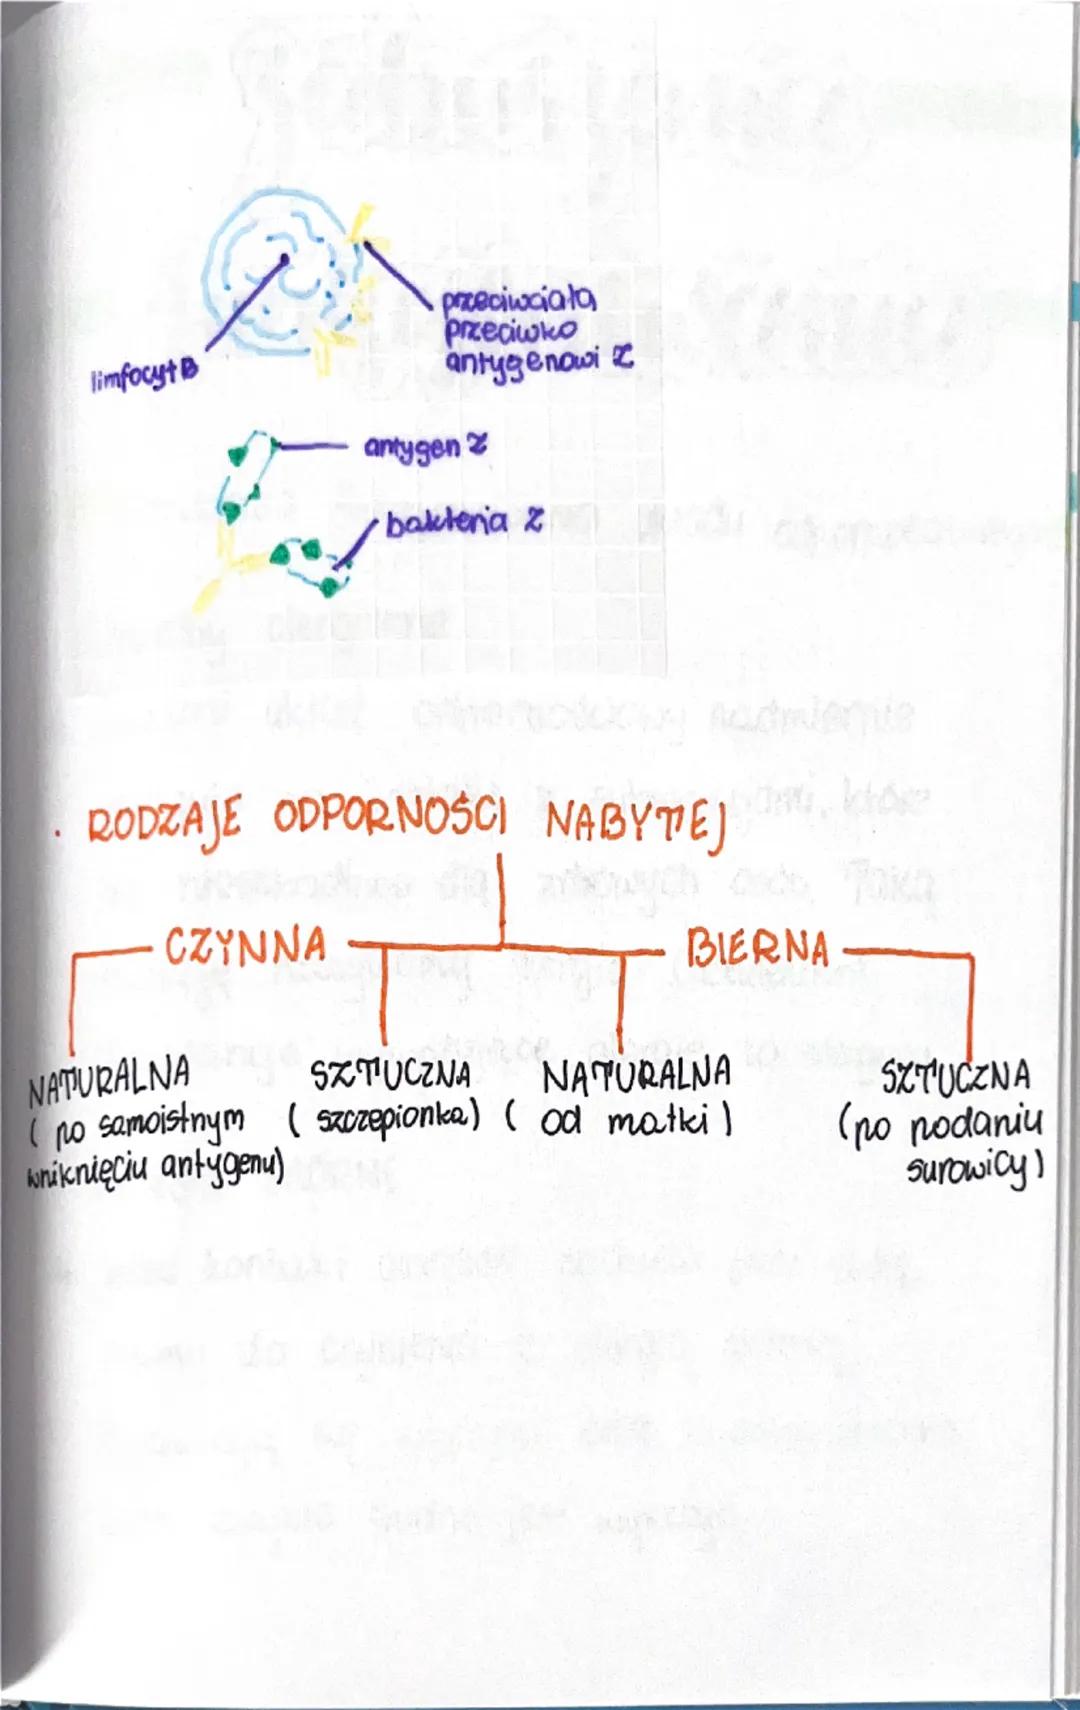 limfocyt B
przeciwciała
przeciwko
antygenowi Z
antygen Z
bakteria Z
. RODZAJE ODPORNOŚCI NABYTEJ
CZYNNA
BIERNA
NATURALNA
( po samoistnym
wniknięciu antygenu)
SZTUCZNA
( szczepionka)
NATURALNA
( od matki )
SZTUCZNA
(po podaniu
surowicy)